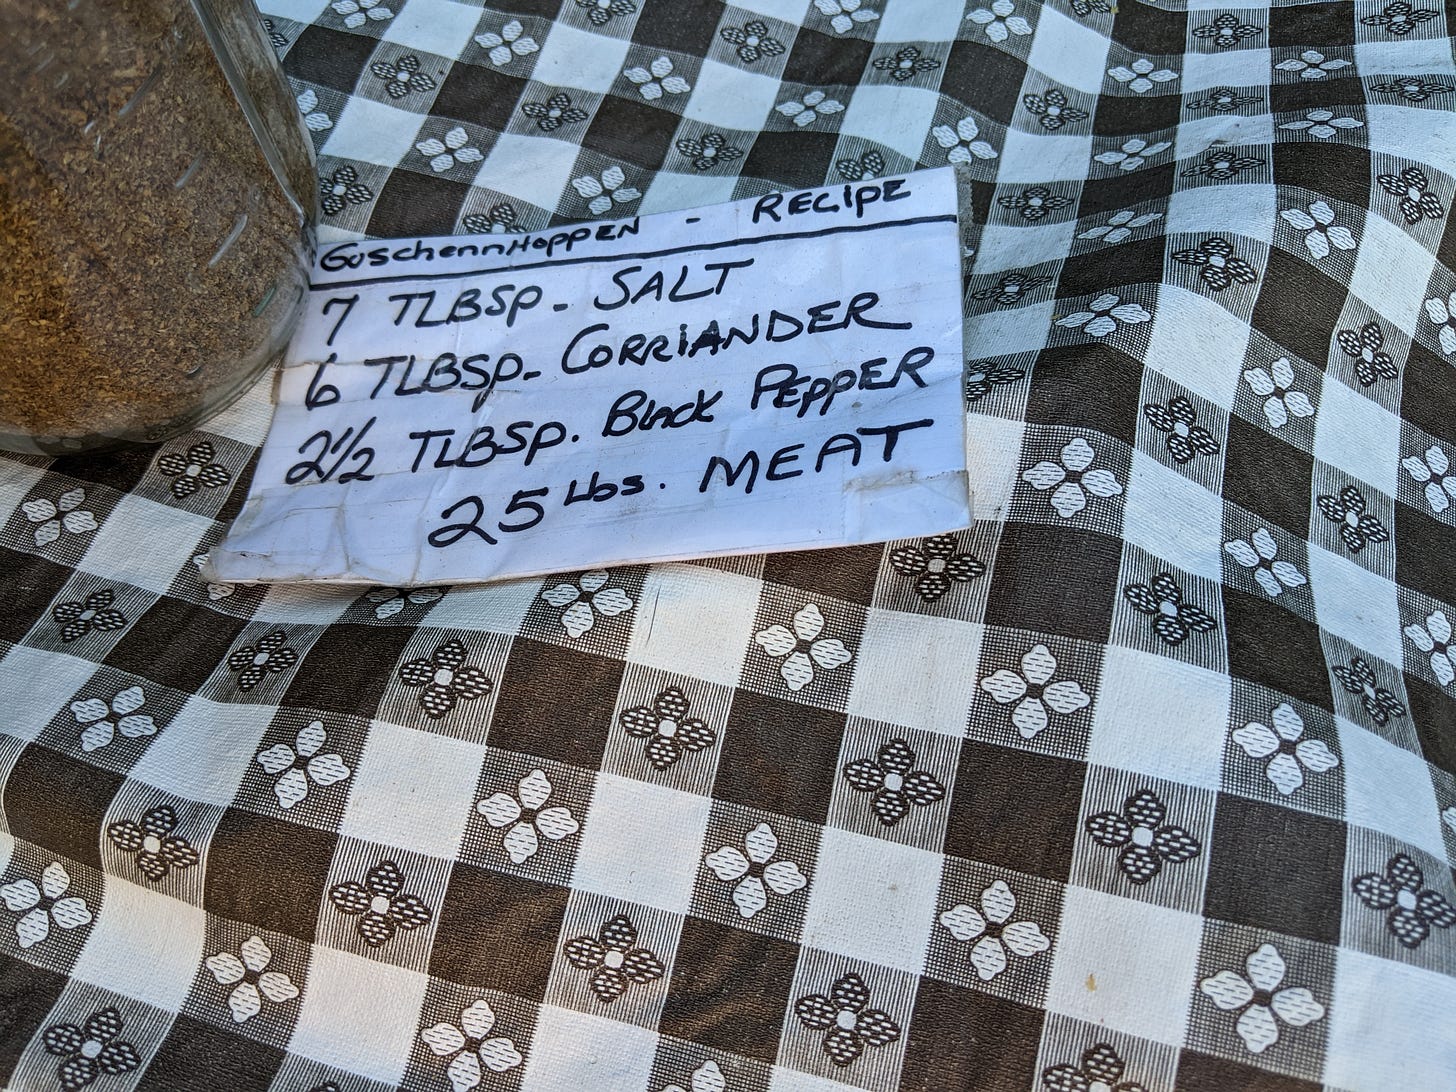 GuschennHoppEN - RECIPE
7 TLBSP. SALT
6 TLBSP. CORRiANDER
2 1/2 TLBSP. BLACK PEPPER
25 Lbs. MEAT